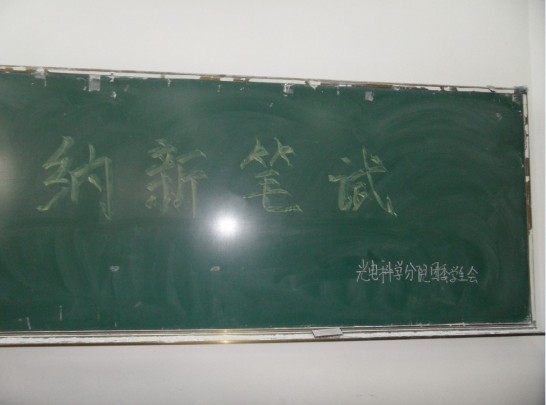 纳新笔试
光电科学分院团委学生会